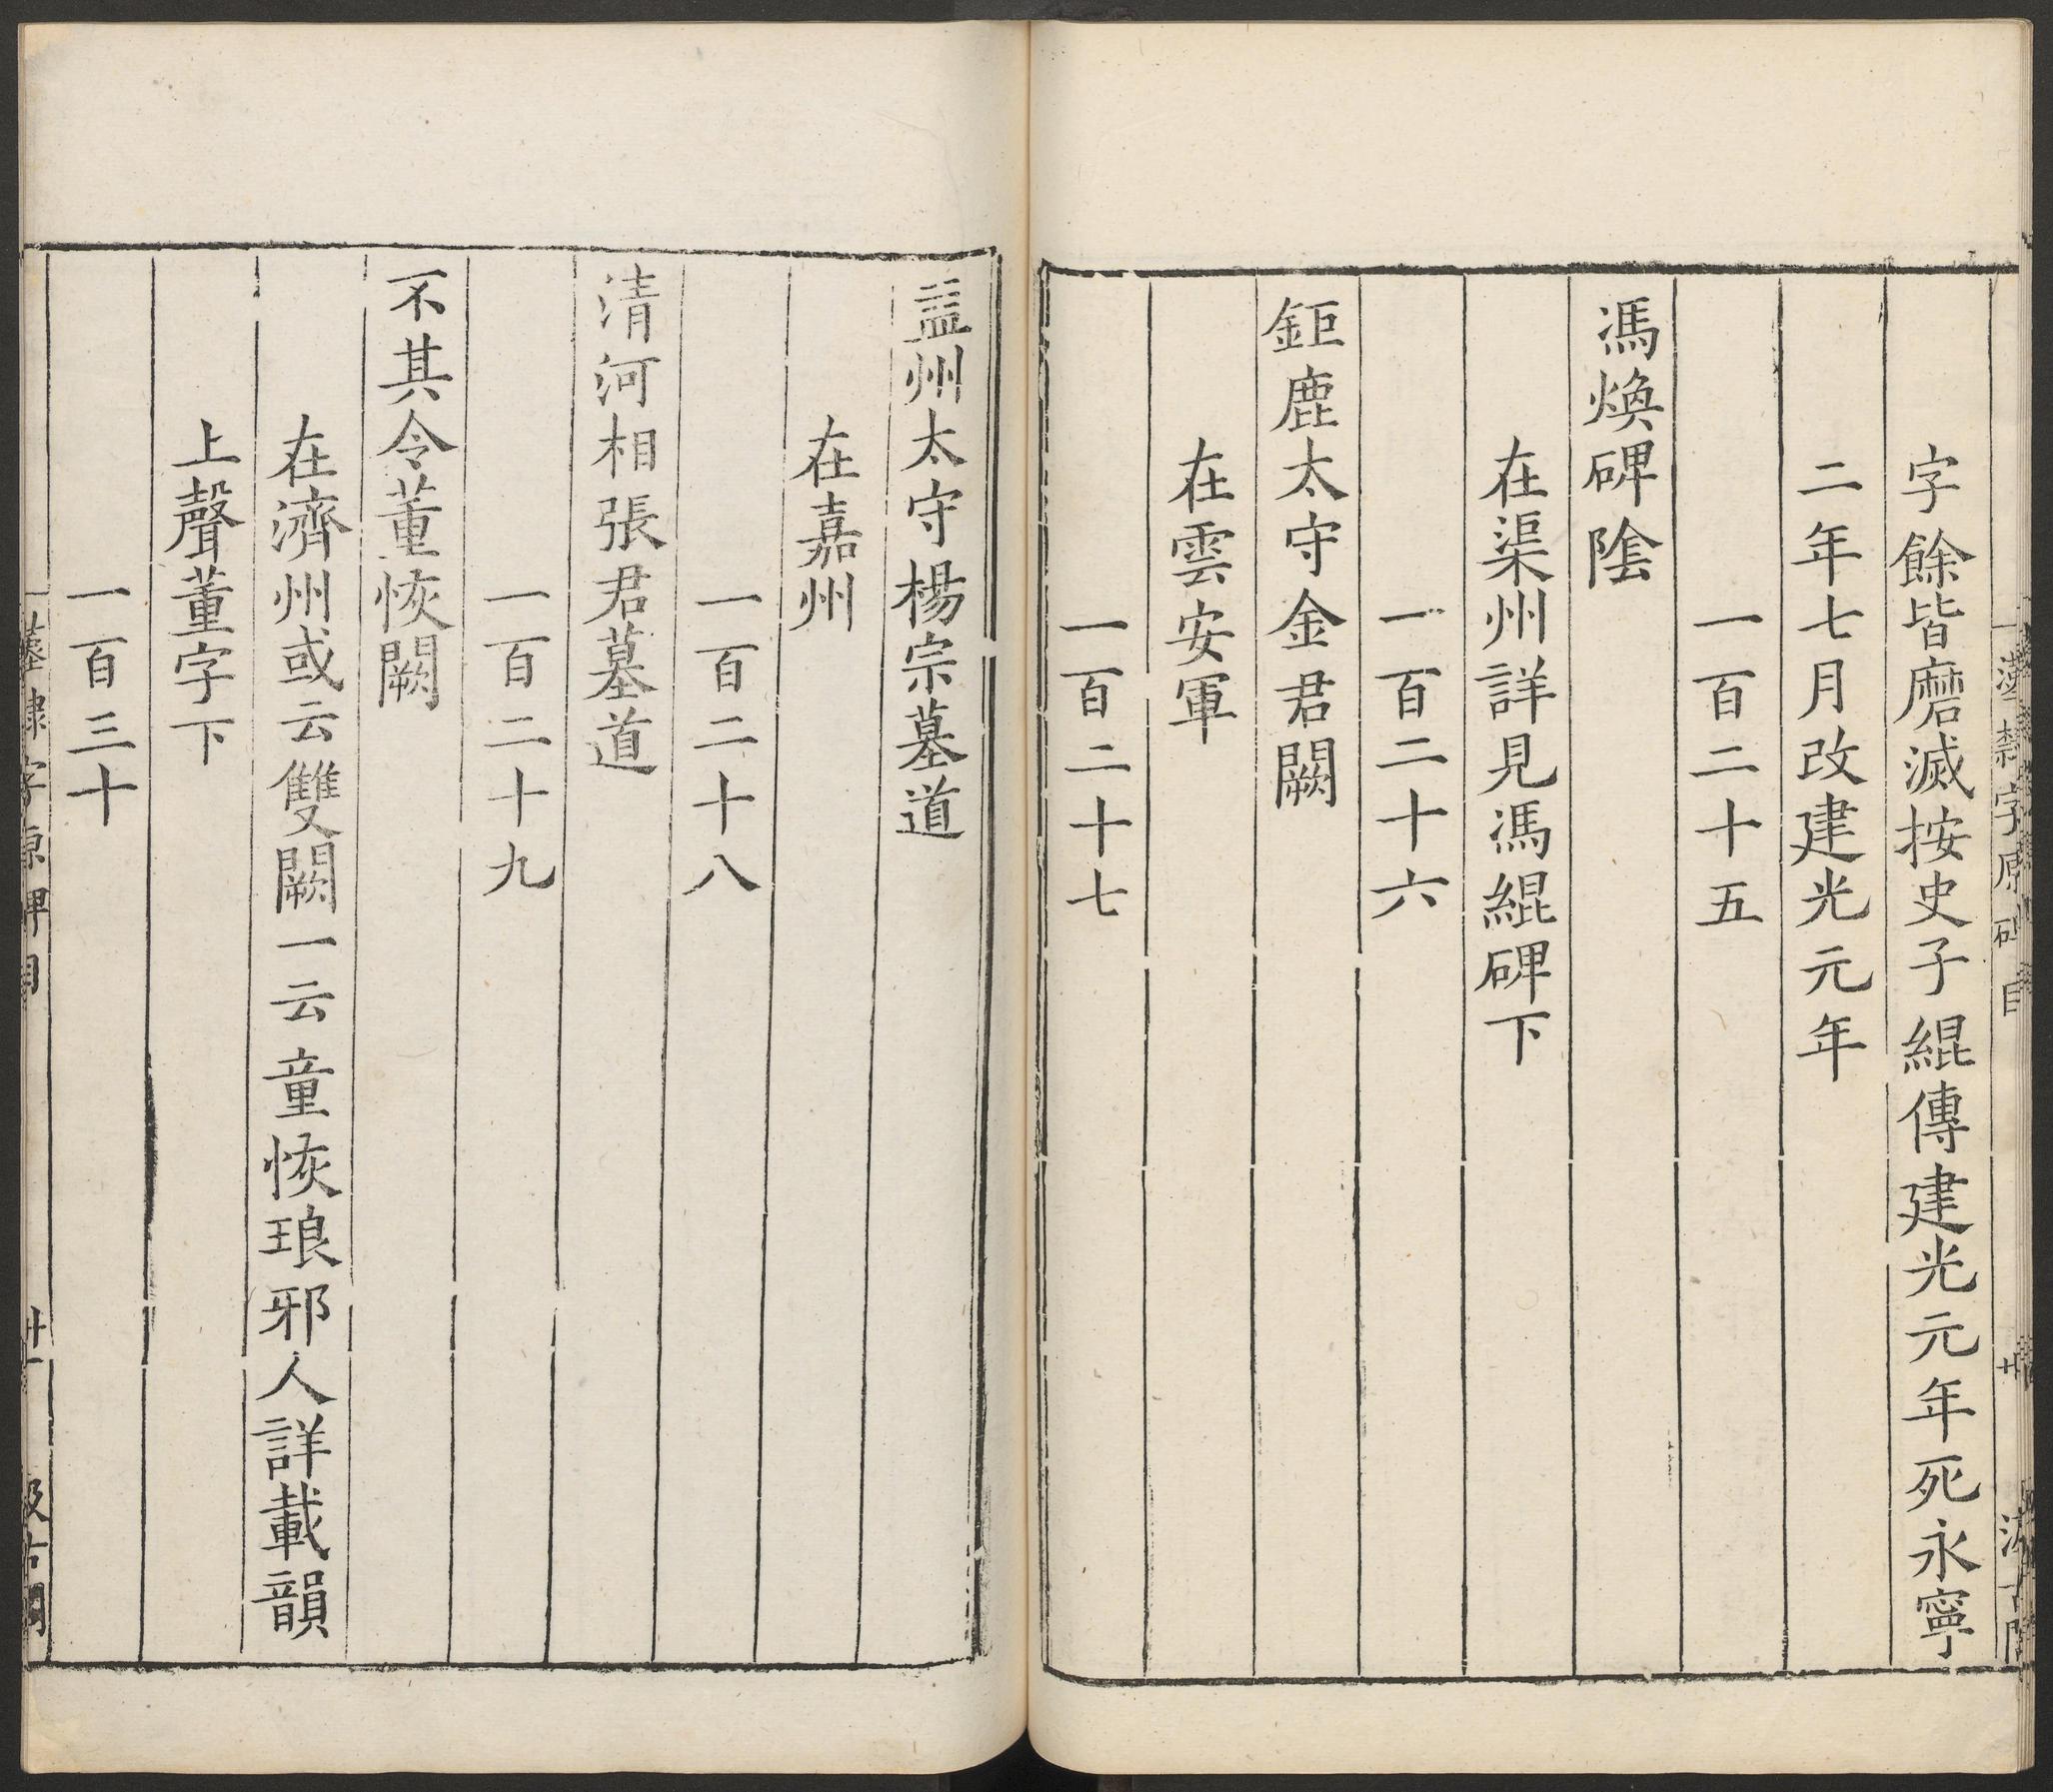 漢隸字原碑目
廿
汲古閣
字餘皆磨滅按史子緄傳建光元年死永寧
二年七月改建光元年
一百二十五
馮煥碑陰
在渠州詳見馮緄碑下
一百二十六
鉅鹿太守金君闕
在雲安軍
一百二十七
益州太守楊宗墓道
在嘉州
一百二十八
清河相張君墓道
一百二十九
不其令董恢闕
在濟州或云雙闕一云童恢琅邪人詳載韻
上聲董字下
一百三十
漢隸字原碑目
廿一
汲古閣